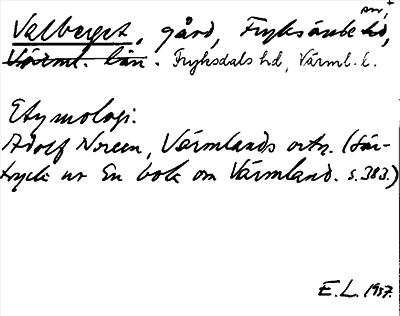 sn, +
Valberget, gård, Fryksände hd,
Värml. län. Fryksdals hd, Värml. l.
Etymologi:
Adolf Noreen, Värmlands ortn. (Sär-
tryck ur En bok om Värmland. s. 383.)
E. L. 1937.